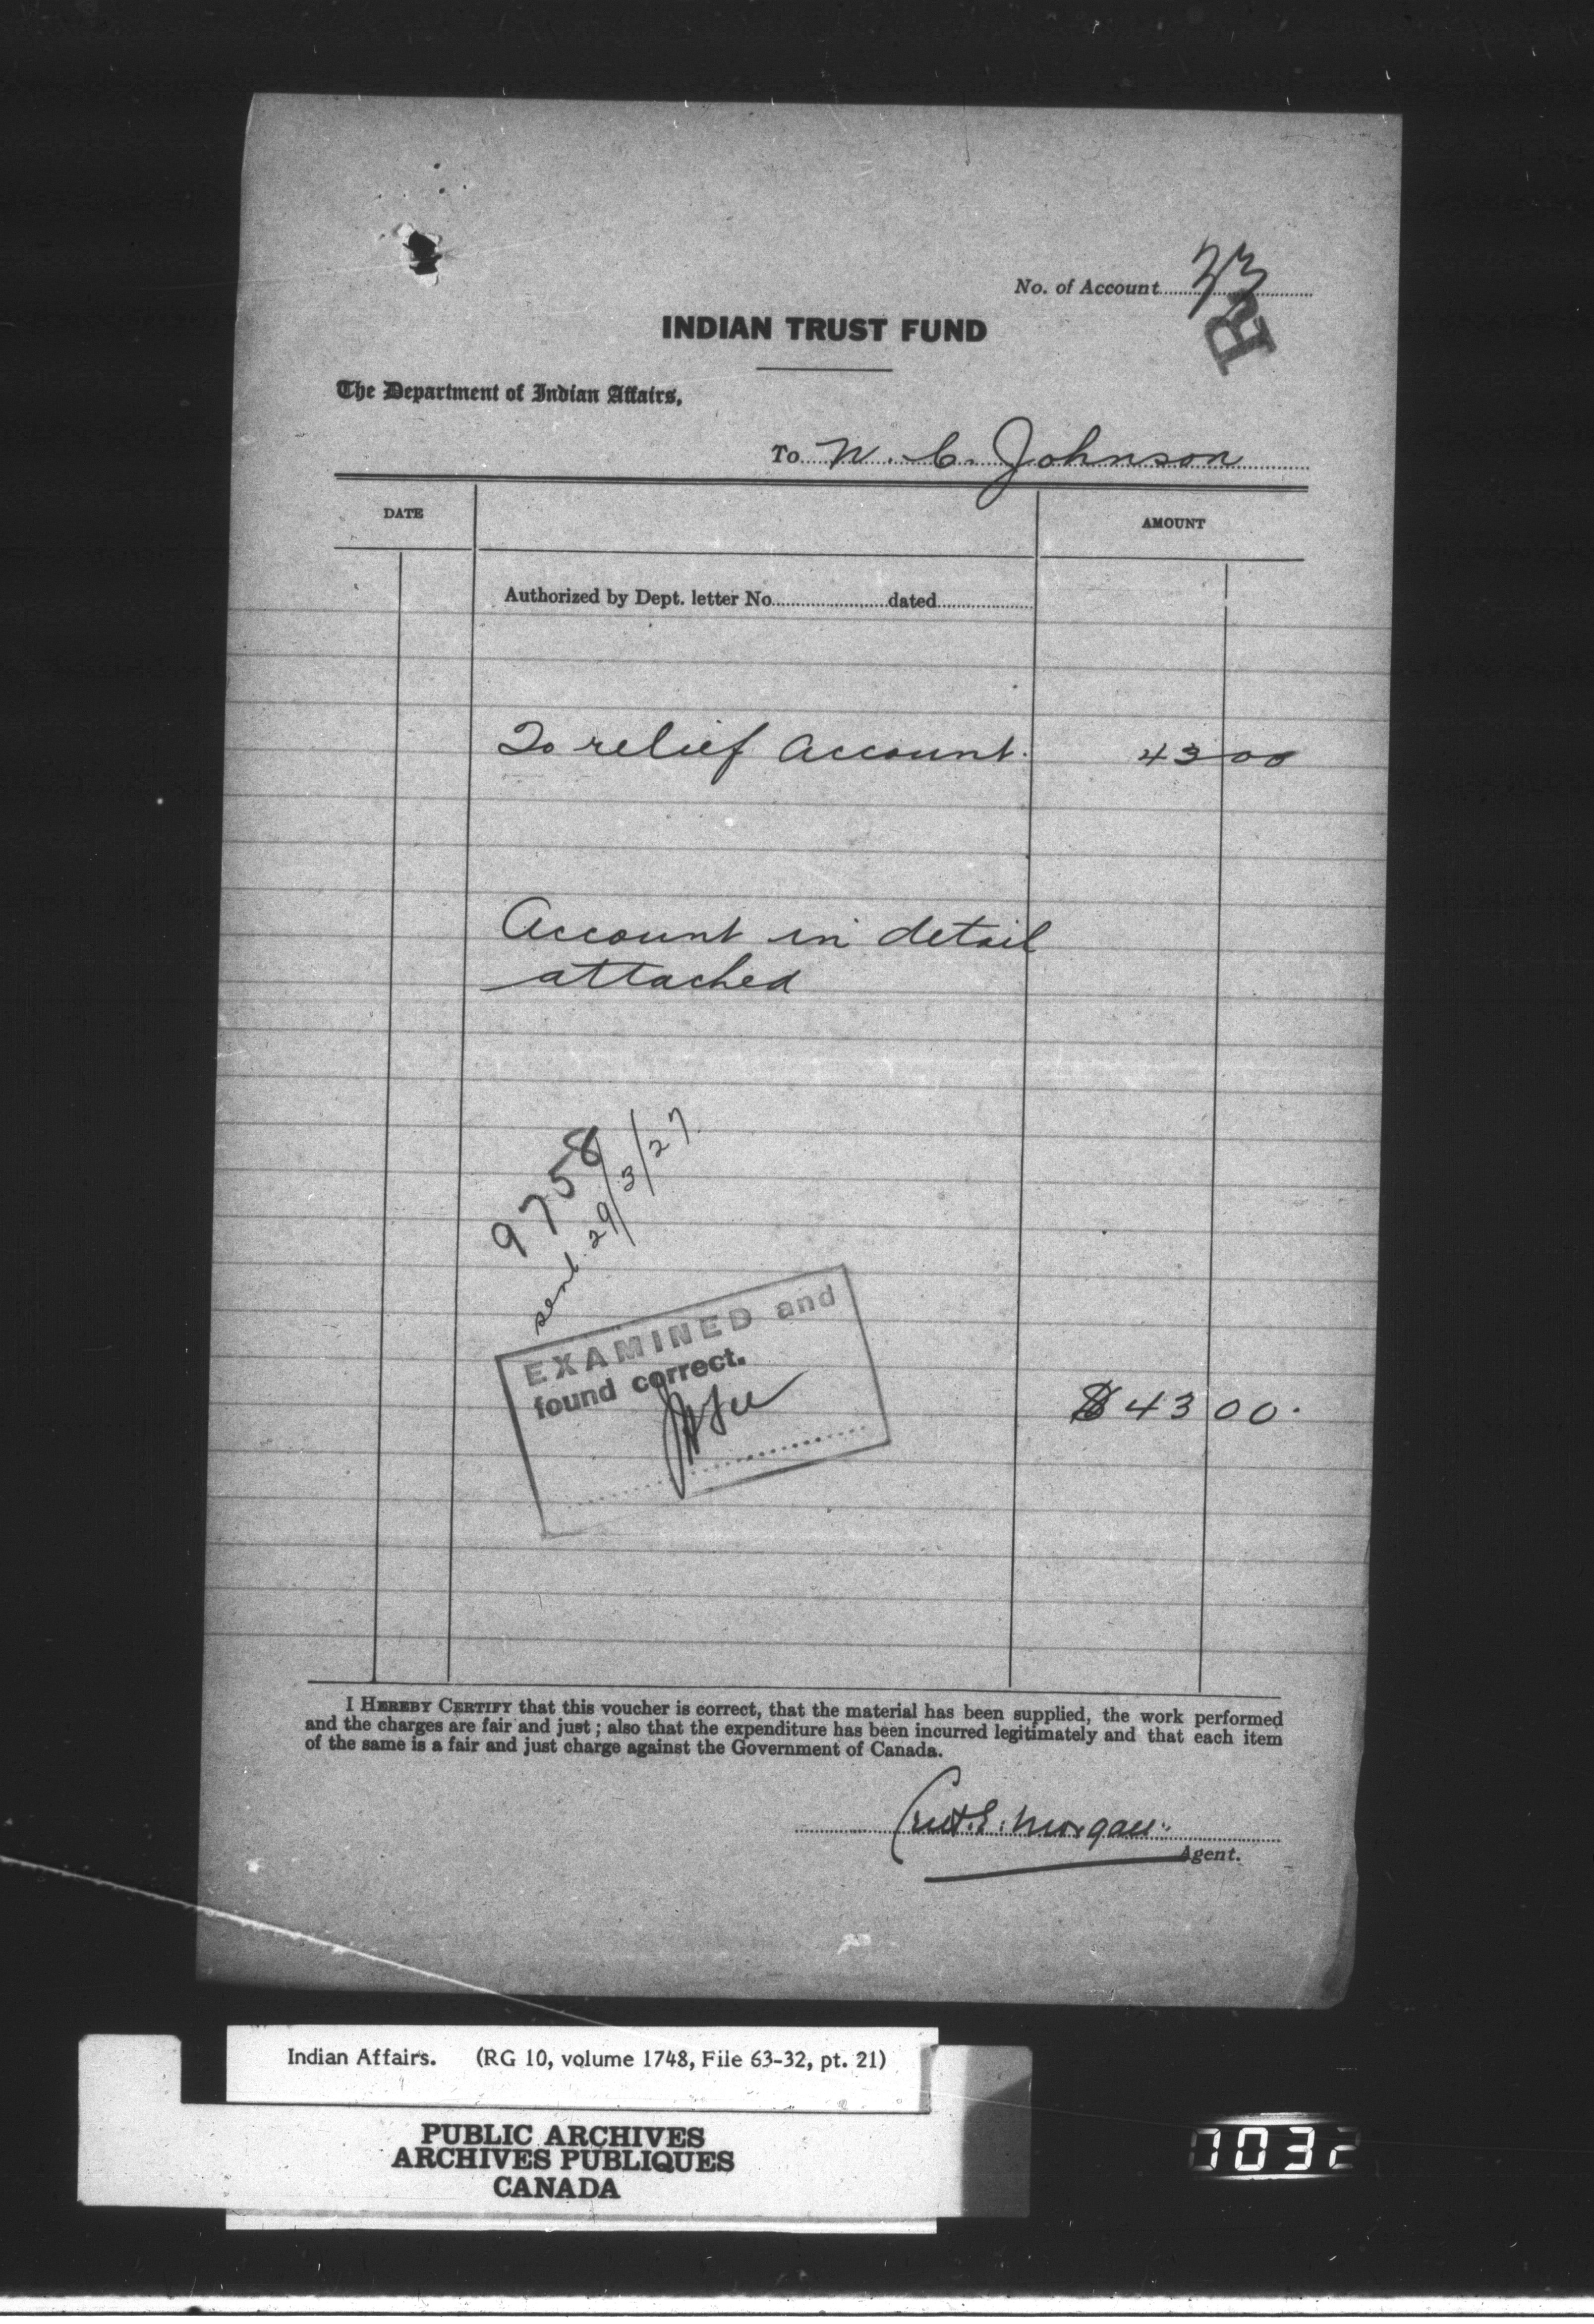 No. of Account 33
R
INDIAN TRUST FUND
The Department of Indian Affairs,
To W. C. Johnson
DATE
AMOUNT
Authorized by Dept. letter No. dated
To relief account. 43 00
Account in detail
attached
9758
sent 29/3/27
EXAMINED and
found correct.
$43 00.
I HEREBY CERTIFY that this voucher is correct, that the material has been supplied, the work performed
and the charges are fair and just; also that the expenditure has been incurred legitimately and that each item
of the same is a fair and just charge against the Government of Canada.
E. Morgan
Agent.
Indian Affairs. (RG 10, volume 1748, File 63-32, pt. 21)
PUBLIC ARCHIVES
ARCHIVES PUBLIQUES
CANADA
7032